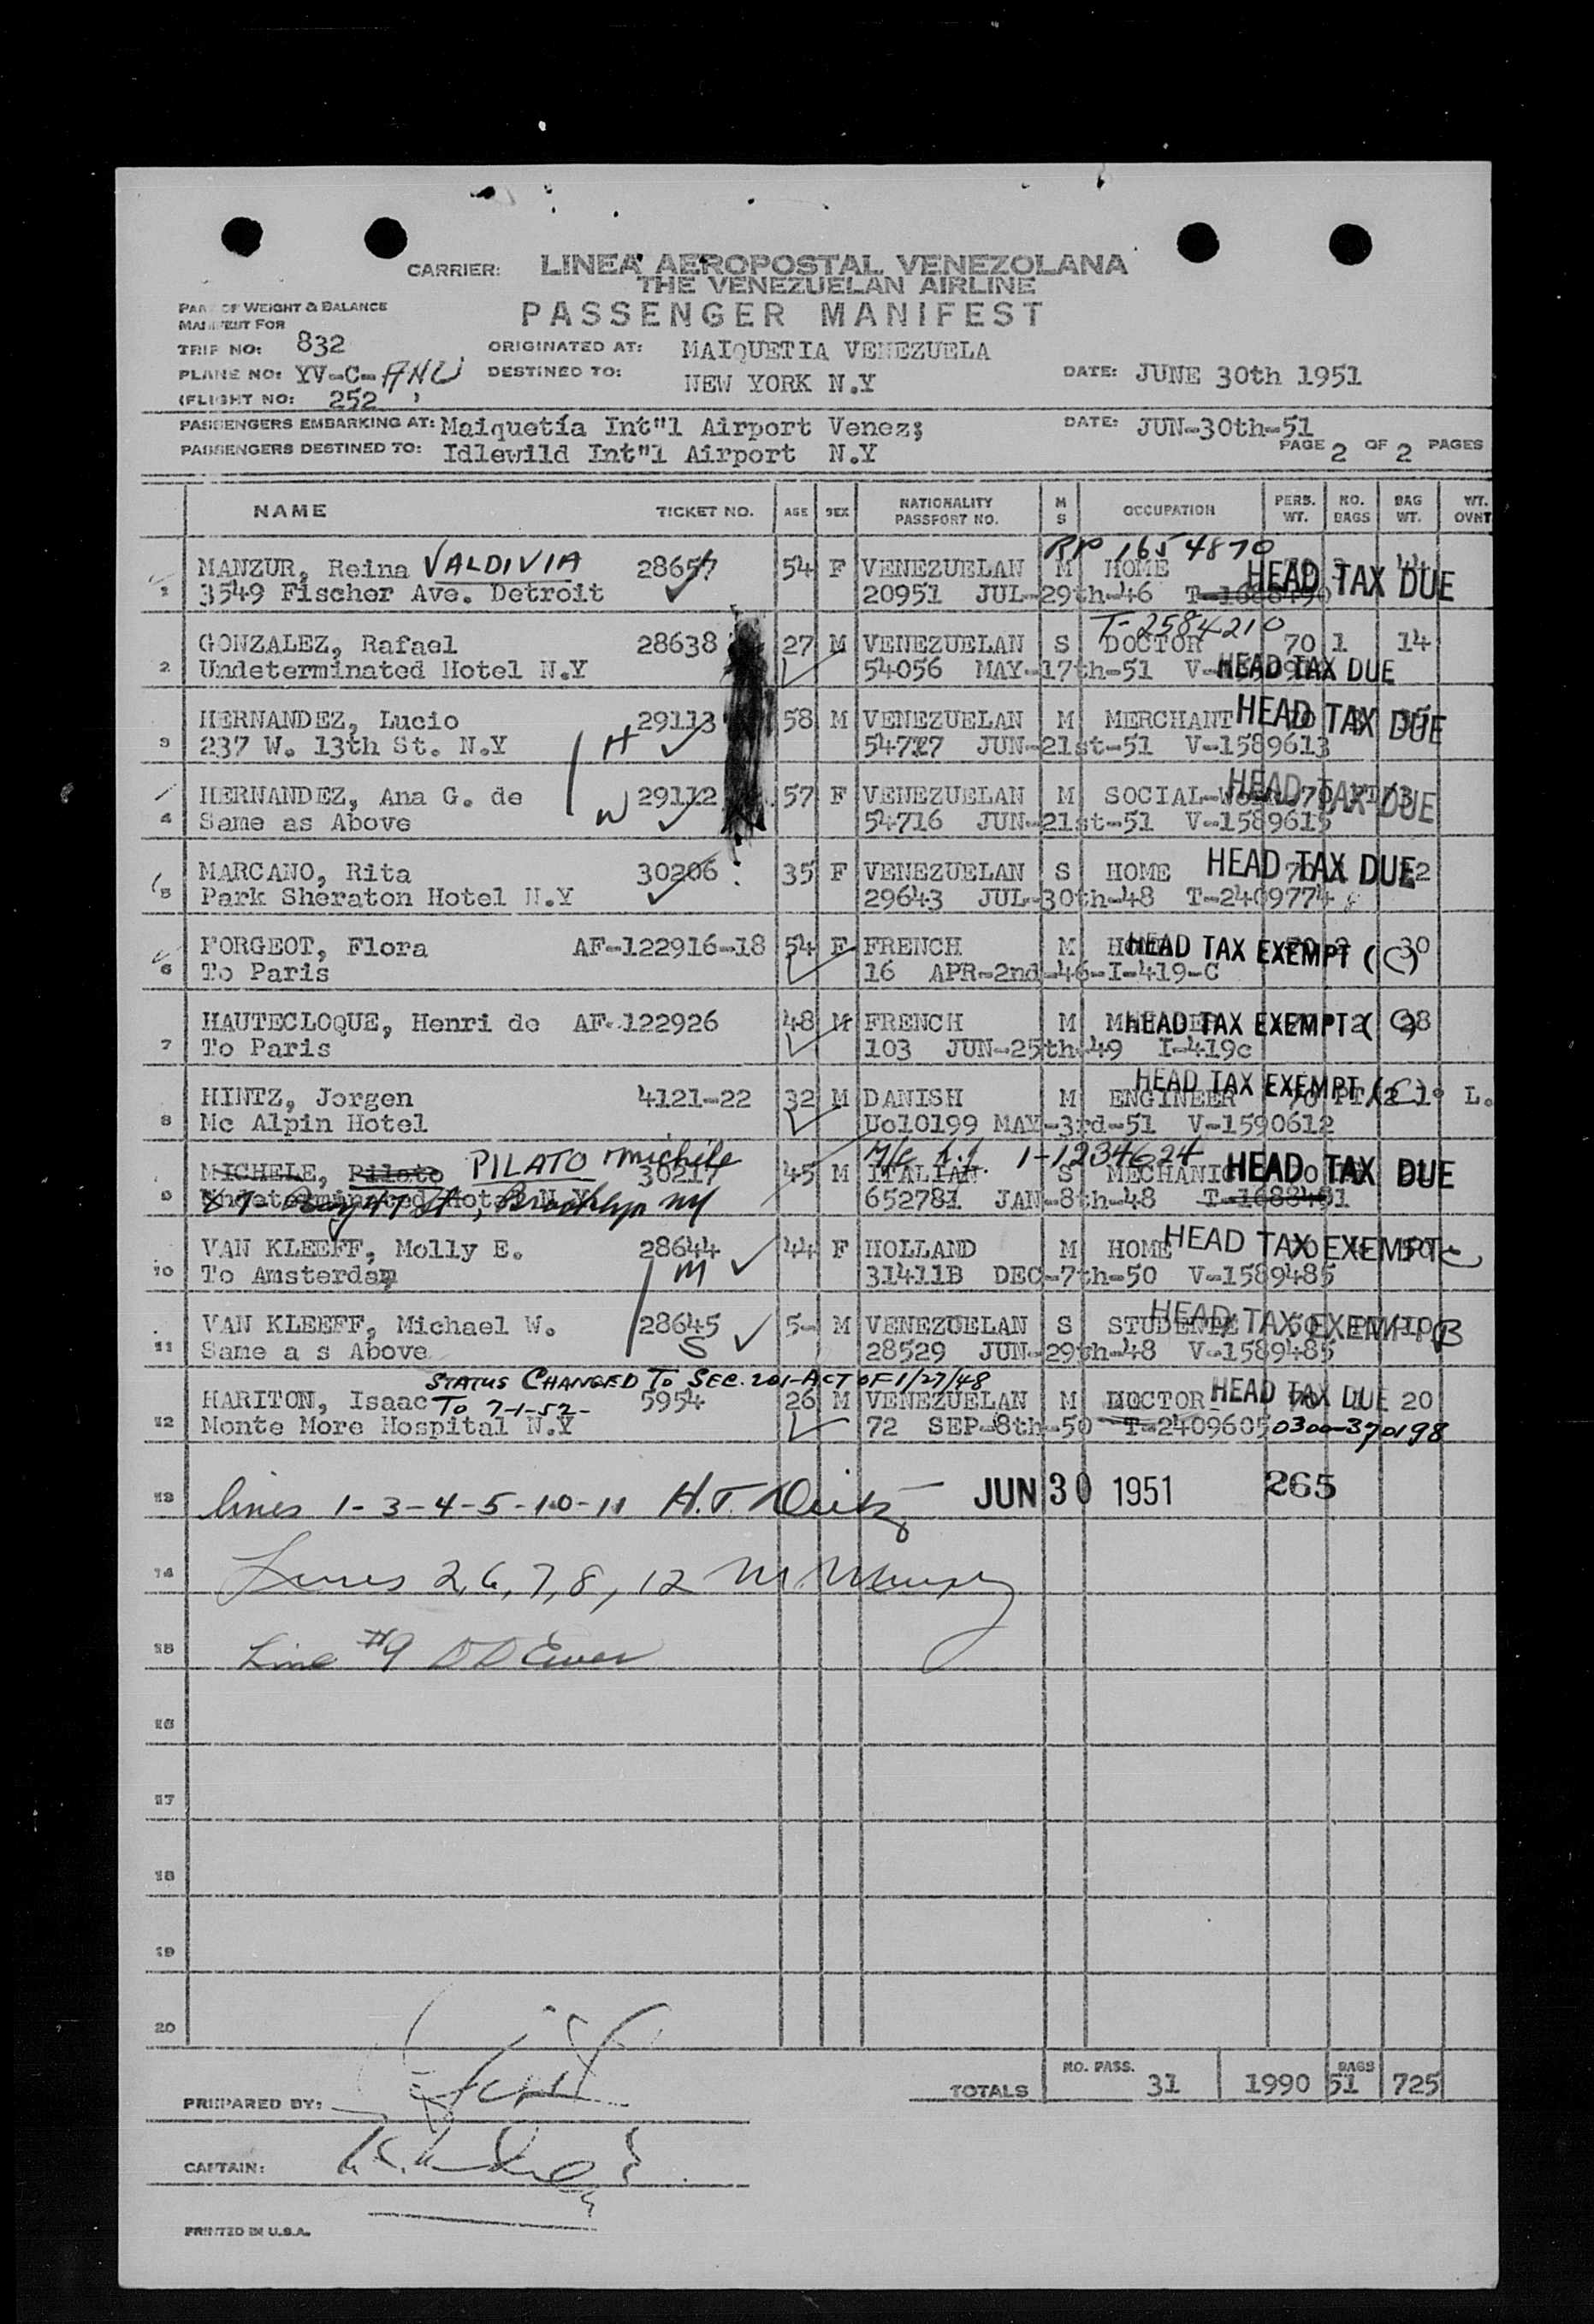 CARRIER: LINEA AEROPOSTAL VENEZOLANA
THE VENEZUELAN AIRLINE
PASSENGER MANIFEST
PART OF WEIGHT & BALANCE
MANIFEST FOR
TRIP NO: 832 ORIGINATED AT: MAIQUETIA VENEZUELA
PLANE NO: YV-C-ANU DESTINED TO: NEW YORK N.Y DATE: JUNE 30th 1951
(FLIGHT NO: 252 )
PASSENGERS EMBARKING AT: Maiquetía Int"l Airport Venez; DATE: JUN-30th-51
PASSENGERS DESTINED TO: Idlewild Int"l Airport N.Y PAGE 2 OF 2 PAGES
NAME TICKET NO. AGE SEX NATIONALITY PASSPORT NO. M S OCCUPATION PERS. WT. NO. BAGS BAG WT. WT. OVNT
RP 1654870
MANZUR, Reina VALDIVIA 28657 54 F VENEZUELAN M HOME HEAD TAX DUE
1 3549 Fischer Ave. Detroit 20951 JUL-29th-46
T-2584210
GONZALEZ, Rafael 28638 27 M VENEZUELAN S DOCTOR 70 1 14
2 Undeterminated Hotel N.Y 54056 MAY-17th-51 HEAD TAX DUE
HERNANDEZ, Lucio 29113 58 M VENEZUELAN M MERCHANT HEAD TAX DUE
3 237 W. 13th St. N.Y H 54717 JUN-21st-51 V-1589613
HERNANDEZ, Ana G. de 29112 57 F VENEZUELAN M SOCIAL HEAD TAX DUE
4 Same as Above W 54716 JUN-21st-51 V-1589615
MARCANO, Rita 30206 35 F VENEZUELAN S HOME HEAD TAX DUE
5 Park Sheraton Hotel N.Y 29643 JUL-30th-48 T-2409774
FORGEOT, Flora AF-122916-18 54 F FRENCH M HEAD TAX EXEMPT (C) 30
6 To Paris 16 APR-2nd-46-I-419-C
HAUTECLOQUE, Henri de AF-122926 48 M FRENCH M HEAD TAX EXEMPT (C) 28
7 To Paris 103 JUN-25th-49 I-419c
HINTZ, Jorgen 4121-22 32 M DANISH M ENGINEER HEAD TAX EXEMPT (C) L.
8 Mc Alpin Hotel Uo10199 MAY-3rd-51 V-1590612
MICHELE, Pilato PILATO Michile 30217 45 M ITALIAN S MECHANIC 1-1234624 HEAD TAX DUE
9 87 Bay 47 St, Brooklyn NY 652781 JAN-8th-48
VAN KLEEFF, Molly E. 28644 44 F HOLLAND M HOME HEAD TAX EXEMPT C
10 To Amsterdam M 31411B DEC-7th-50 V-1589485
VAN KLEEFF, Michael W. 28645 5- M VENEZUELAN S STUDENTE HEAD TAX EXEMPT B
11 Same a s Above S 28529 JUN-29th-48 V-1589485
STATUS CHANGED TO SEC. 201-ACT OF 1/27/48
HARITON, Isaac TO 7-1-52- 5954 26 M VENEZUELAN M DOCTOR HEAD TAX DUE 20
12 Monte More Hospital N.Y 72 SEP-8th-50 T-2409605 0300-370198
13 lines 1-3-4-5-10-11 JUN 30 1951 265
14 Lines 2,6,7,8,12
15 Line #9
16
17
18
19
20
TOTALS NO. PASS. 31 1990 BAGS 51 725
PREPARED BY:
CAPTAIN:
PRINTED IN U.S.A.